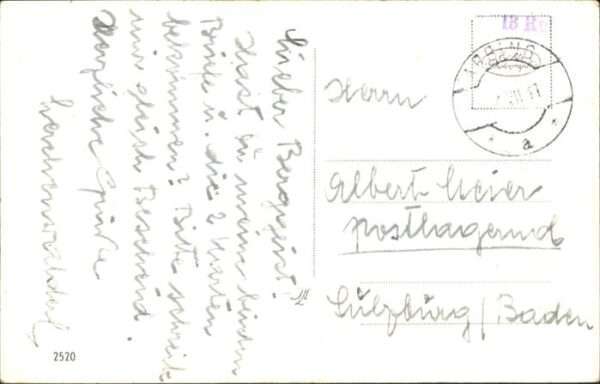 Lieber Berggeist!
Hast du meine beiden
Briefe u. die 2 Karten
bekommen? Bitte schreib
mir gleich Bescheid
Herzliche Grüße
Herrn
Albert Meier
postlagernd
Sulzburg/Baden
2520
a